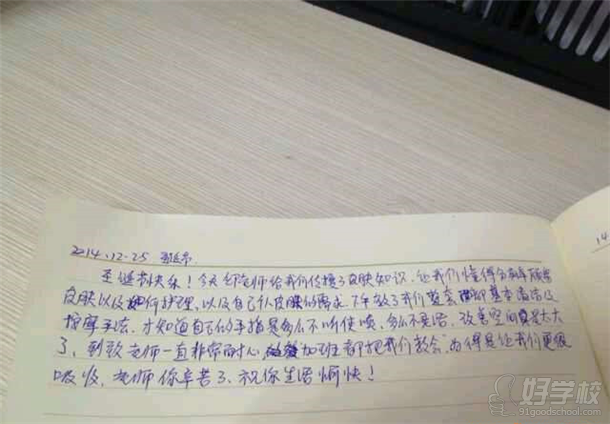 2014.12-25 圣诞节
圣诞节快乐！今天 老师给我们传授了皮肤知识，让我们懂得分辨顾客
皮肤以及如何护理，以及自己认 皮肤的需求 下午教了我们 基本 及
按摩手法，才知道自己的手指是多么不听使唤，多么不灵活，改善空间真是太大
了，到致老师一直非常耐心 加班都把我们教会，为得是让我们更好
吸收，老师你辛苦了，祝你生活愉快！
14
好学校
91goodschool.com